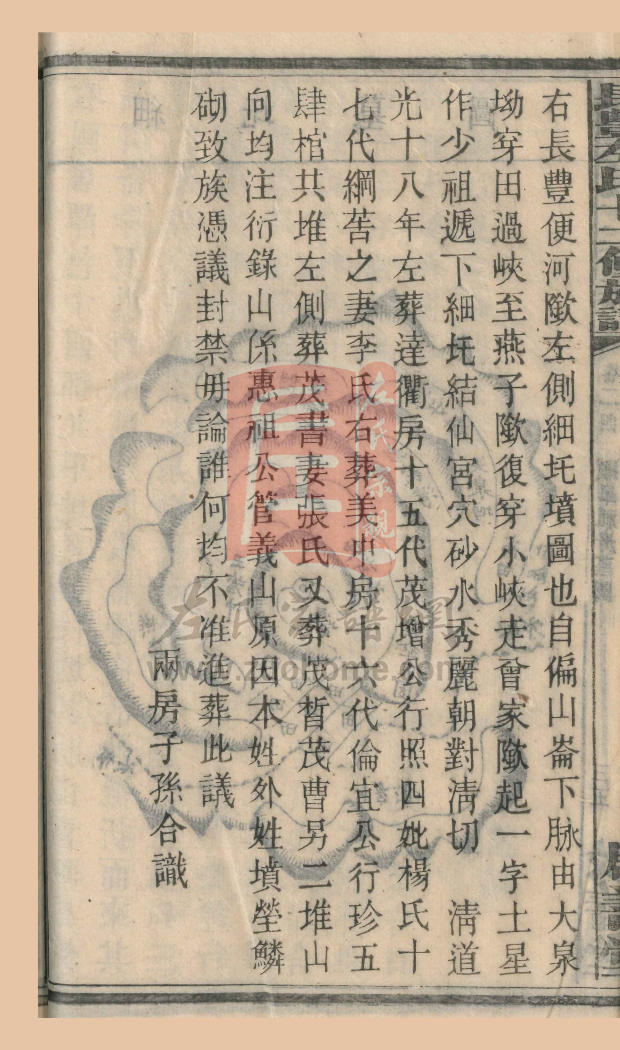 右長豐便河歟左側細圫墳圖也自偏山崙下脉由大泉
坳穿田過峽至燕子歟復穿小峽走曾家歟起一字土星
作少祖遞下細圫結仙宮穴砂水秀麗朝對清切　清道
光十八年左葬達衢房十五代茂增公行照四妣楊氏十
七代綱苦之妻李氏右葬美中房十六代倫宜公行珍五
肆棺共堆左側葬茂書妻張氏又葬茂晳茂曹另二堆山
向均注衍錄山係惠祖公管義山原因本姓外姓墳塋鱗
砌致族憑議封禁毋論誰何均不准進葬此議
兩房子孫合識
左氏宗譜網
www.zuohome.com